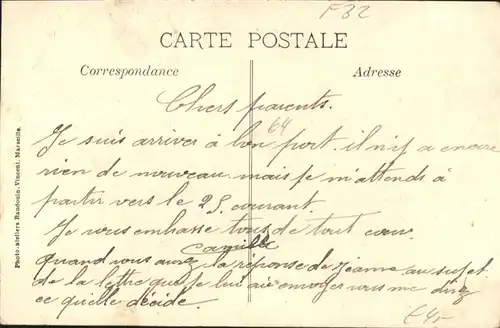 F32
CARTE POSTALE
Correspondance
Adresse
Chers parents.
64
Je suis arriver à bon port. il n'y a encore
rien de nouveau mais je m'attends à
partir vers le 25 courant
Je vous embrasse tous de tout cœur
Camille
Quand vous aurez la réponse de Jeanne au sujet
de la lettre que je lui ai envoyer vous me direz
ce quelle décide.
Photo-ateliers Baudouin, Vincent, Marseille.